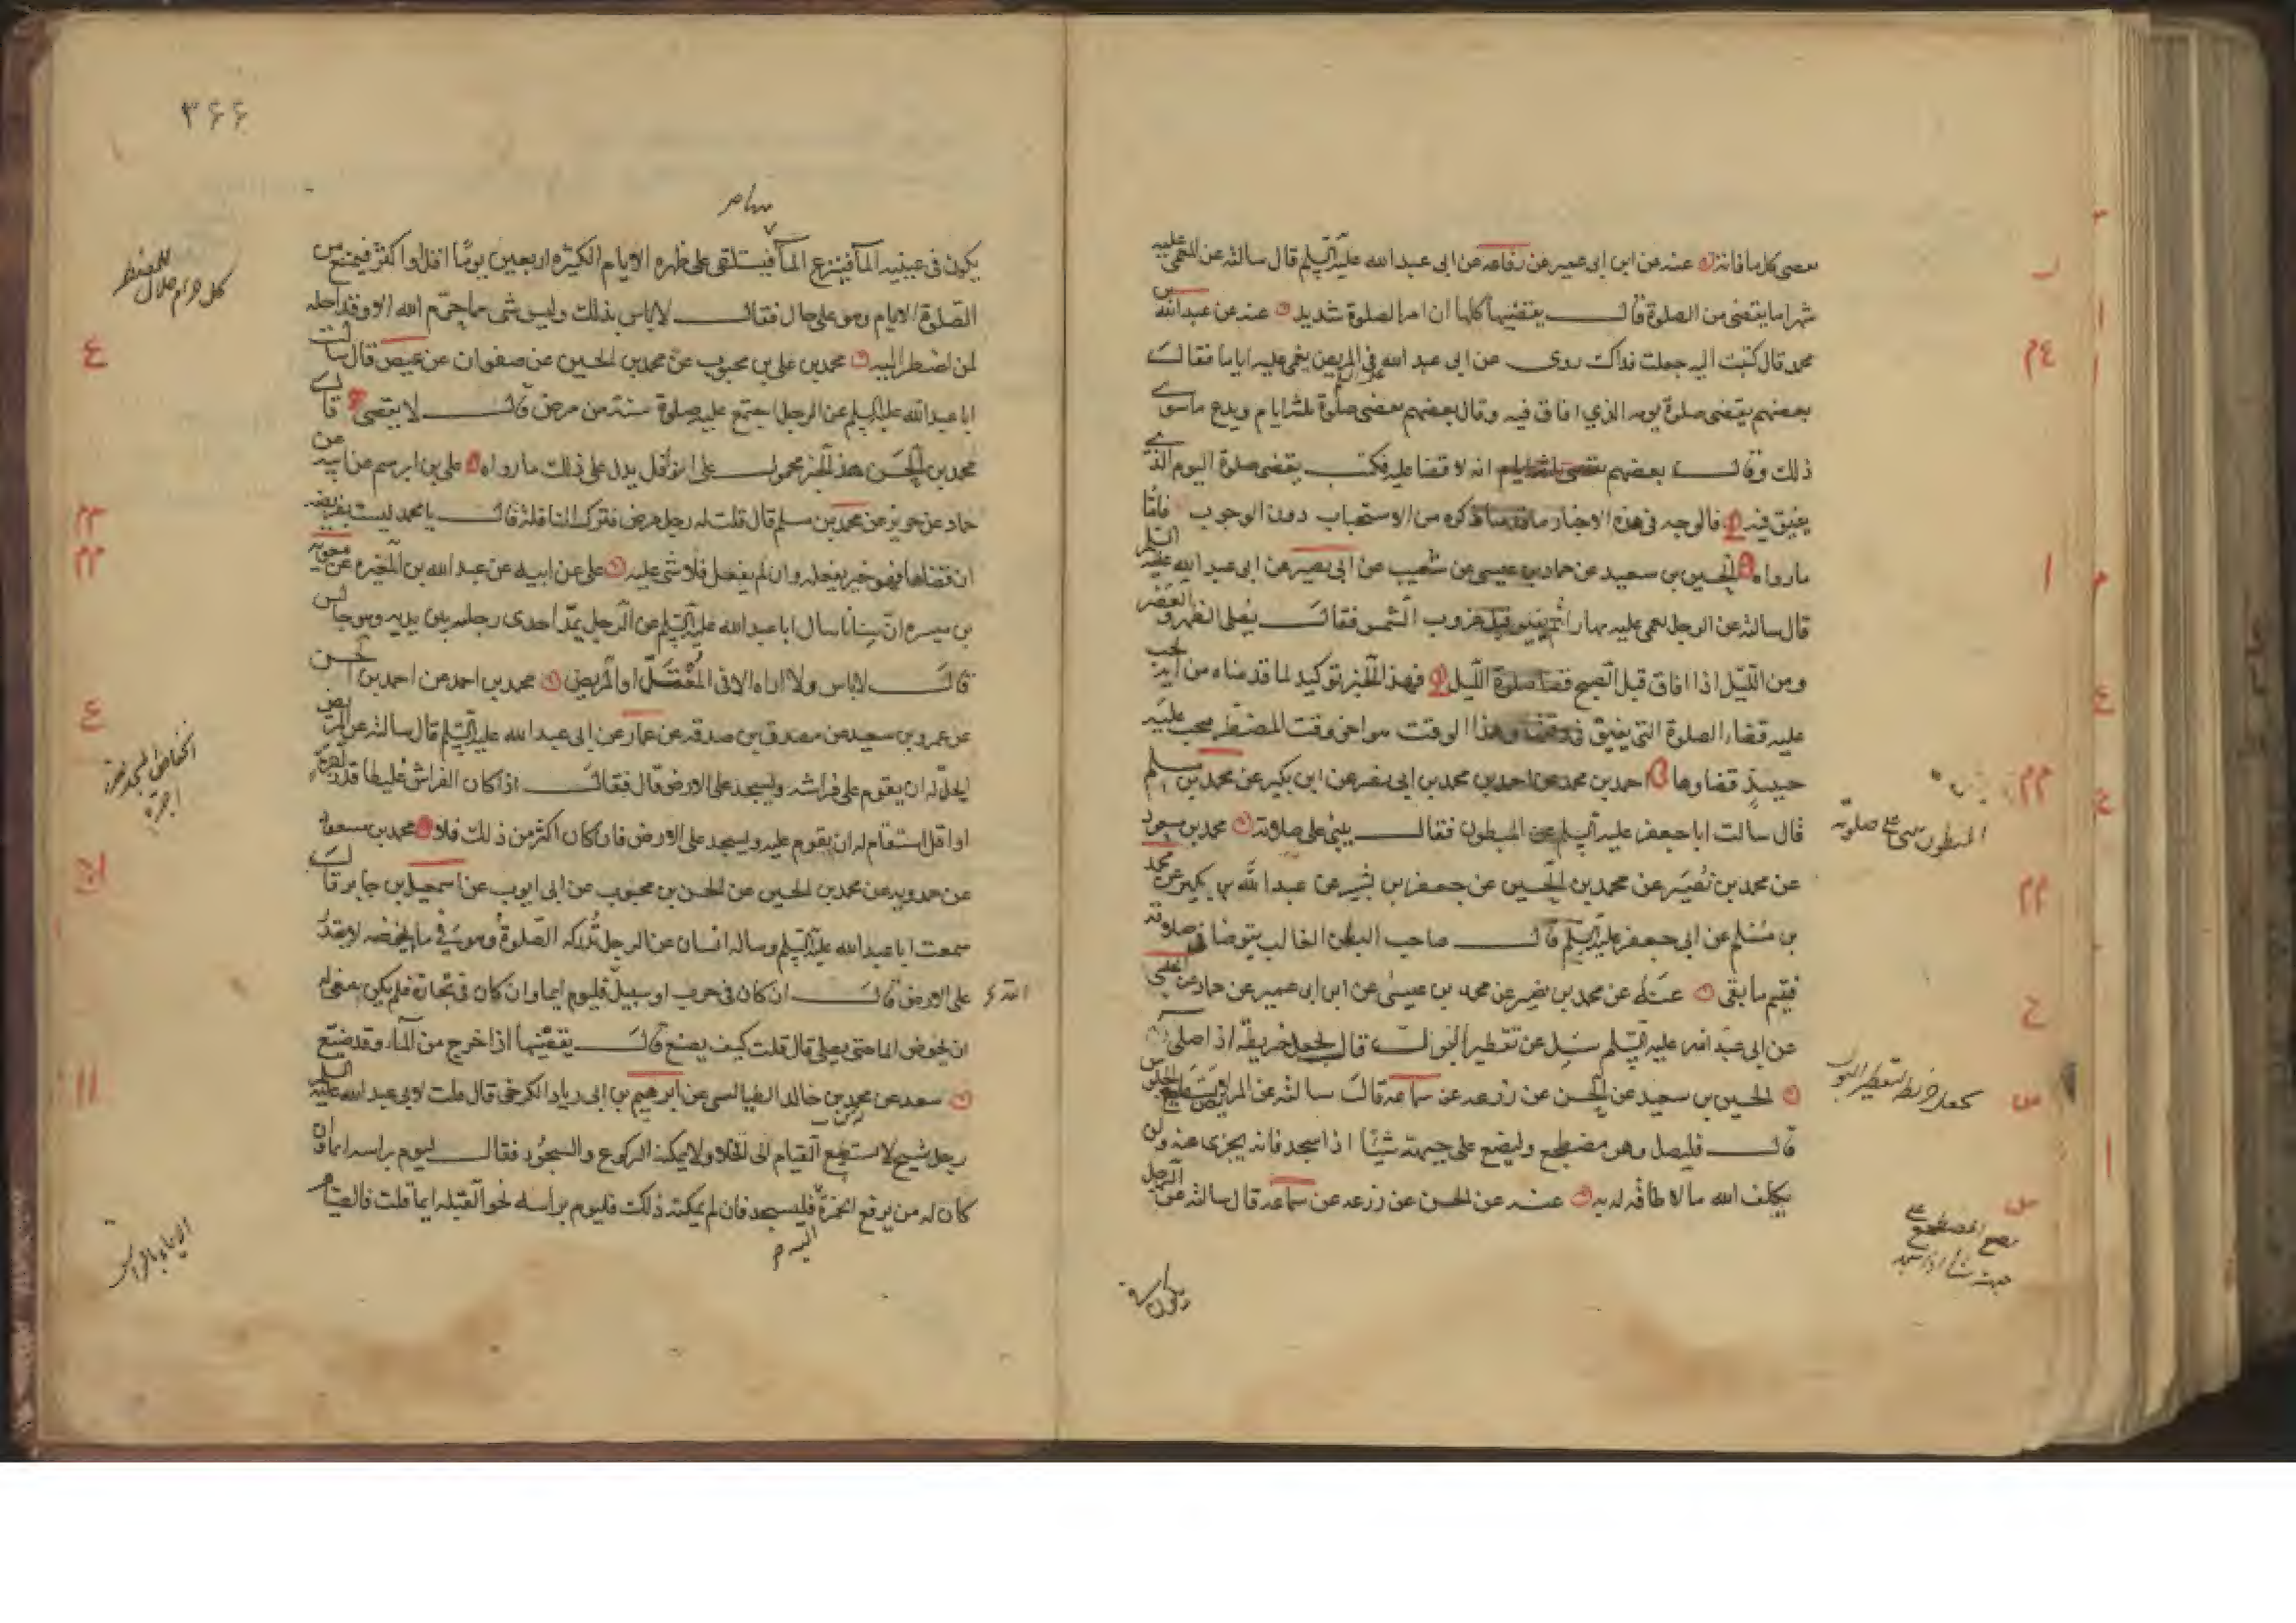 يقضى كل ما فاته عنه عن ابن ابى عمير عن رفاعه عن ابى عبد الله عليه السلم قال سالته عن المغمى عليه
شهرا ما يقضى من الصلوة قال يقضيها كلها ان امر الصلوة شديد عنه عن عبد الله بن
محمد قال كتبت اليه جعلت فداك روى عن ابى عبد الله فى المريض يغمى عليه اياما فقال
بعضهم يقضى صلوة يومه الذي افاق فيه وقال بعضهم يقضى صلوة ثلثه ايام ويدع ما سوى
ذلك وقال بعضهم انه لا قضا عليه فكتب يقضى صلوة اليوم الذى
يفيق فيه فالوجه فى هذه الاخبار ما قدمنا ذكره من الاستحباب دون الوجوب فاما
ما رواه الحسين بن سعيد عن حماد بن عيسى عن شعيب عن ابى بصير عن ابى عبد الله عليه السلم
قال سالته عن الرجل يغمى عليه نهارا ثم يفيق قبل غروب الشمس فقال يصلى الظهر و العصر
ومن الليل اذا افاق قبل الصبح قضا صلوة الليل فهذا الخبر توكيد لما قدمناه من انه يجب
عليه قضاء الصلوة التى يفيق فى وقتها وهذا الوقت هو اخر وقت المضطر يجب عليه
حينيذ قضاوها احمد بن محمد عن احمد بن محمد بن ابى نصر عن ابن بكير عن محمد بن مسلم
قال سالت ابا جعفر عليه السلم عن المبطون فقال يبنى على صلاوته محمد بن مسعود
عن محمد بن نصير عن محمد بن الحسين عن جعفر بن بشير عن عبد الله بن بكير عن محمد
بن مسلم عن ابى جعفر عليه السلم قال صاحب البطن الغالب يتوضا فى صلاوته
فيتم ما بقى عنه عن محمد بن نصير عن محمد بن عيسى عن ابن ابى عمير عن حماد عن الحلبى
عن ابى عبد الله عليه السلم سئل عن تقطير البول قال يجعل خريطة اذا صلى
الحسين بن سعيد عن الحسن عن زرعه عن سماعه قال سالته عن المريض لا يستطيع الجلوس
قال فليصل وهو مضطجع وليضع على جبهته شيئا اذا سجد فانه يجزى عنه ولن
يكلف الله ما لا طاقه له به عنه عن الحسن عن زرعه عن سماعه قال سالته عن الرجل
يكون فى
المبطون يبنى على صلوته
يجعل خريطة لتقطير البول
٣٦٦
يكون فى عينيه المآ فينتزع المآ فيستلقى على ظهره الايام الكثيره اربعين يوما اقل او اكثر فيمتنع من
الصلوة الايام وهو على حال فقال لا باس بذلك وليس شى مما حرم الله الا وقد احله
لمن اضطر اليه محمد بن على بن محبوب عن محمد بن الحسين عن صفوان عن عيص قال سالت
ابا عبد الله عليه السلم عن الرجل اجتمع عليه صلوة سنة من مرض قال لا يقضى قال
محمد بن الحسن هذا الخبر محمول على النوافل يدل على ذلك ما رواه على بن ابرهيم عن ابيه عن
حماد عن حريز عن محمد بن مسلم قال قلت له رجل مرض فترك النافلة قال يا محمد ليست بفريضه
ان قضاها فهو خير يفعله وان لم يفعل فلا شى عليه على عن ابيه عن عبد الله بن المغيره عن معويه
بن ميسره ان سنانا سال ابا عبد الله عليه السلم عن الرجل يمد احدى رجليه بين يديه وهو جالس
قال لا باس ولا اراه الا فى المعتل او المريض محمد بن احمد عن احمد بن الحسن
عن عمرو بن سعيد عن مصدق بن صدقه عن عمار عن ابى عبد الله عليه السلم قال سالته عن المريض
ايحل له ان يقوم على فراشه ويسجد على الارض قال فقال اذا كان الفراش غليظا قدر اجرة
او اقل استقام له ان يقوم عليه ويسجد على الارض فان كان اكثر من ذلك فلا محمد بن مسعود
عن حمدويه عن محمد بن الحسين عن الحسن بن محبوب عن ابى ايوب عن اسمعيل بن جابر قال
سمعت ابا عبد الله عليه السلم وساله انسان عن الرجل تدركه الصلوة وهو فى ما يخوضه لا يقدر
على الارض قال ان كان فى حرب او سبيل الله فليوم ايما وان كان فى تجارة فلم يكن ينبغى له
ان يخوض الما حتى يصلى قال قلت كيف يصنع قال يقضيها اذا خرج من المآ وقد ضيع
سعد عن محمد بن خالد الطيالسى عن ابرهيم بن ابى زياد الكرخى قال قلت لابى عبد الله عليه السلم
رجل شيخ لا يستطيع القيام الى الخلا ولا يمكنه الركوع والسجود فقال ليوم براسه ايما وان
كان له من يرفع الخمرة اليه فليسجد فان لم يمكنه ذلك فليوم براسه نحو القبله ايما قلت فالصيام
كل حرام حلال للمضطر